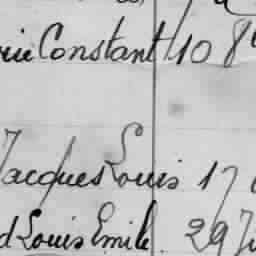 Constant 10 8
Jacques Louis 17
d Louis Emile 29